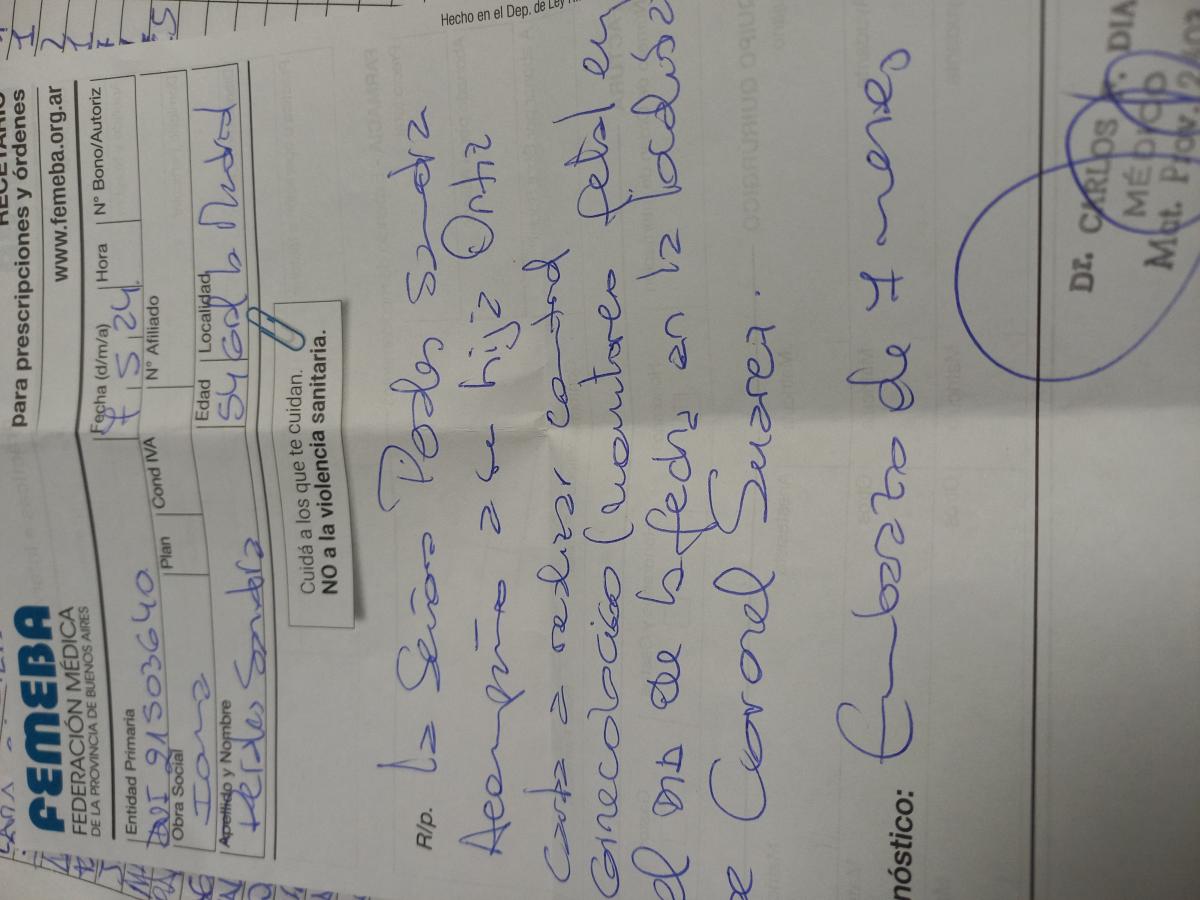 Hecho en el Dep. de Ley
RECETARIO
para prescripciones y órdenes
www.femeba.org.ar
FEMEBA
FEDERACIÓN MÉDICA
DE LA PROVINCIA DE BUENOS AIRES
Entidad Primaria
DNI 21503640
Fecha (d/m/a)
7 5 24
Hora
N° Bono/Autoriz
Obra Social
Ioma
Plan
Cond IVA
N° Afiliado
Apellido y Nombre
Sandra
Edad
54
Localidad
Gral la Madrid
Cuidá a los que te cuidan.
NO a la violencia sanitaria.
R/p.
la Señora Sandra
Acompaño a su hija Ortiz
a realizar control
Ginecologico (monitoreo fetal en
el dia de la fecha en la
de Coronel Suarez.
nóstico:
Embarazo de 7 meses
Dr. CARLOS DIA
MÉDICO
Mat. Prov.